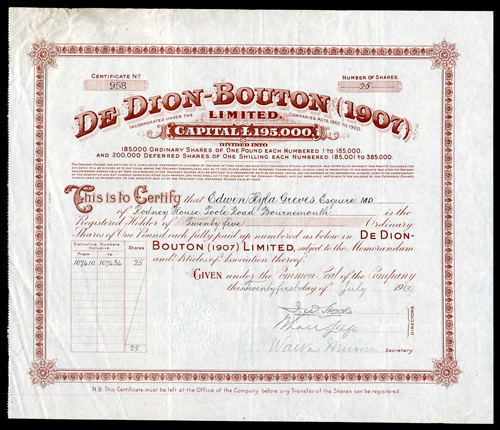 CERTIFICATE No
958
NUMBER OF SHARES.
25
DE DION-BOUTON (1907)
INCORPORATED UNDER THE COMPANIES ACTS, 1862 TO 1900.
LIMITED.
CAPITAL £195,000,
DIVIDED INTO
185,000 ORDINARY SHARES OF ONE POUND EACH NUMBERED 1 TO 185,000.
AND 200,000 DEFERRED SHARES OF ONE SHILLING EACH NUMBERED 185,001 TO 385,000.
This is to Certify that Edwin Hyla Greves Esquire MD.
of Rodney House, Poole Road, Bournemouth is the
Registered Holder of Twenty five Ordinary
Shares of One Pound each fully paid up numbered as below in DE DION-
BOUTON (1907) LIMITED, subject to the Memorandum
and Articles of Association thereof.
Distinctive Numbers Inclusive Shares
From to
107410 107434 25
GIVEN under the Common Seal of the Company
this Twenty first day of July 190
DIRECTORS
Secretary
25
N.B. This Certificate must be left at the Office of the Company before any Transfer of the Shares can be registered.